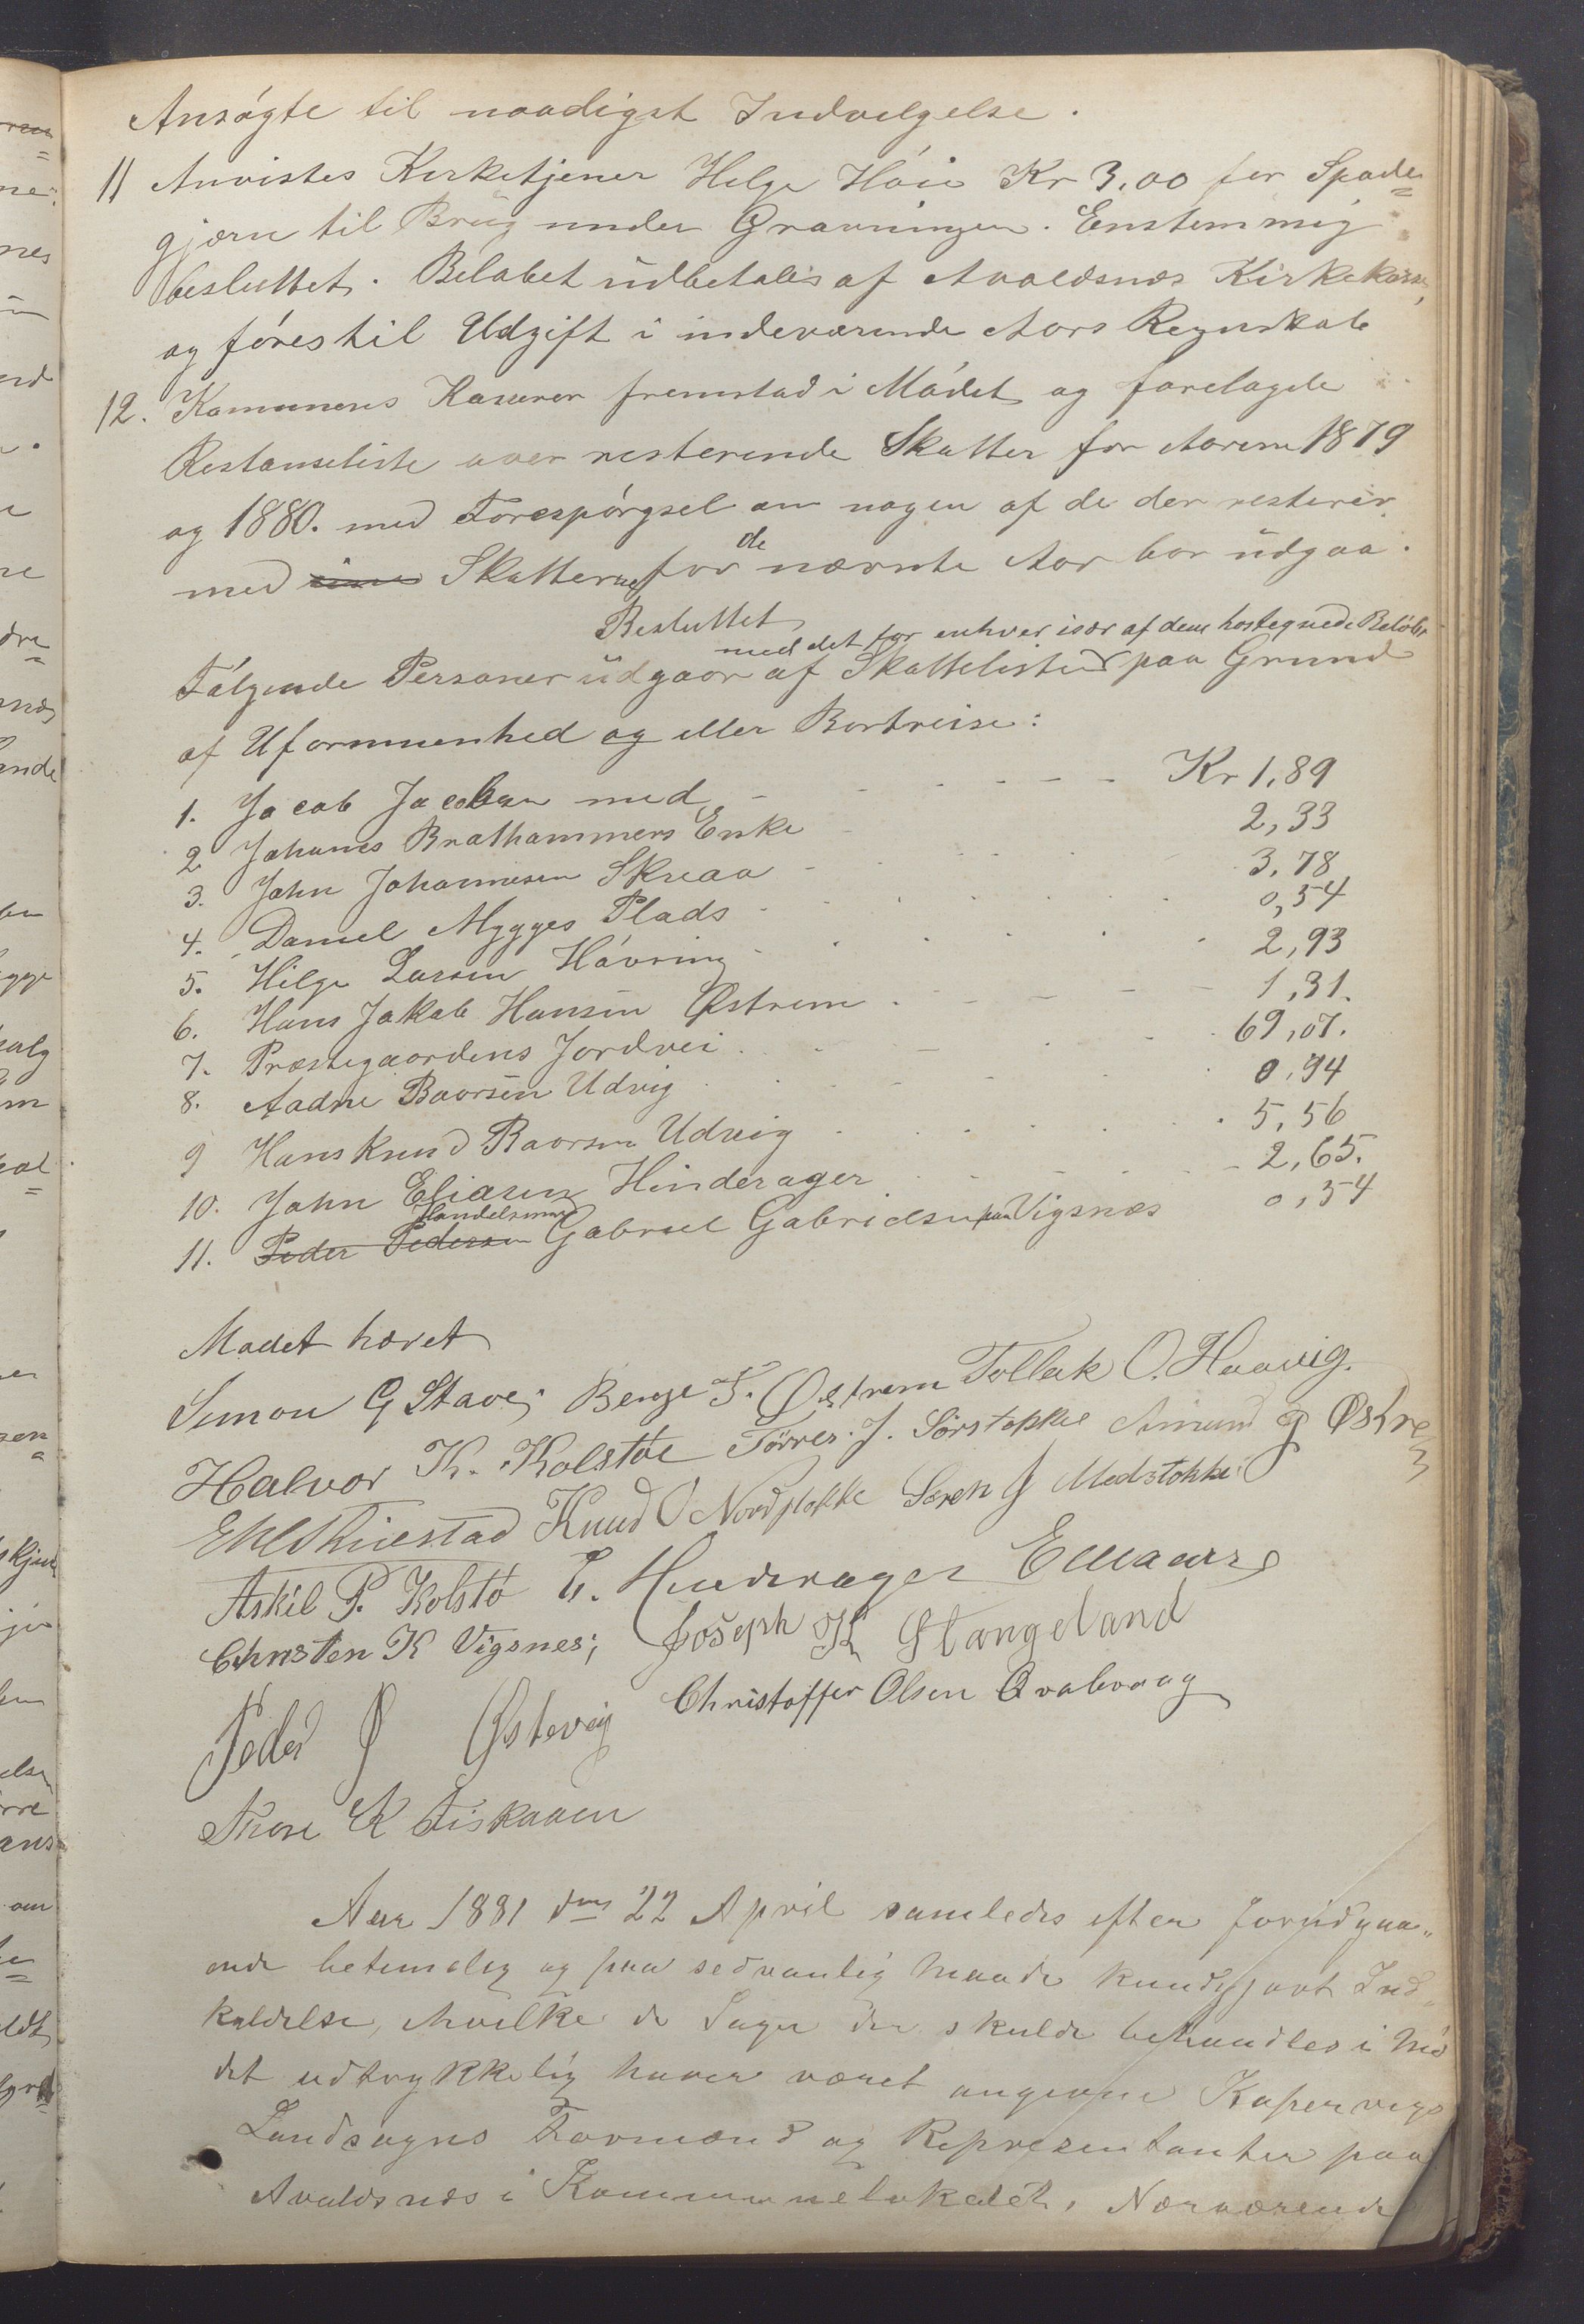 Ansøgte til naadigst Indvilgelse.
11 Anvistes Kirketjener Helge Høie Kr 3,00 for Spade=
gjørn til Brug under Gravningen. Enstemmig
besluttet. Beløbet udbetales af Avaldsnæs Kirkekasse,
og føres til Udgift i indeværende Aars Regnskab
12. Kommunens Kasserer fremstod i Mødet og forelagde
Restanseliste over resterende Skatter for Aarene 1879
og 1880. med Forespørgsel om nogen af de der resterer
med Skatterne for de nævnte Aar bør udgaa.
Besluttet
med det for enhver især af dem hostegnede Beløb
Følgende Personer udgaar af Skattelisten paa Grund
af Uformuenhed og eller Bortreise:
1. Jacob Jacobsen med - - - - - Kr 1,89
2 Johanes Brathammers Enke 2,33
3. John Johannesen Skreaa 3,78
4. Daniel Mygges Plads 0,54
5. Helge Larsen Høvring 2,93
6. Hans Jakob Hansen Østrem 1,31.
7. Præstegaardens Jordvei 69,07.
8. Aadne Baarsen Udvig 0,94
9 Hans Knud Baarsen Udvig 5,56
10. John Eliasen Hinderager 2,65.
11. Peder Pedersen Handelsmand Gabriel Gabrielsen paa Vigsnæs 0,54
Mødet hævet
Simon G Stave; Benge T. Østrem Tollak O. Haavig.
Halvor K. Kolstøe Tørres. J. Sørstokke Amund G Østrem
Knud O Nordstokke Søren J Medstokke
Askil P. Kolstø E. Hinderager
Christen K Vigsnes; Joseph K Stangeland
Peder Ø Østevig Christoffer Olsen Qvalevaag
Thore K Fiskaaen
Aar 1881 den 22 April samledes efter forudgaa„
ende betimelig og paa sedvanlig Maade kundgjort Ind„
kaldelse, hvilke de Sager der skulde behandles i Mø
det udtrykkelig haver været angivne Kopervigs
Landsogns Formænd og Representanter paa
Avaldsnæs i Kommunelokalet, Nærværende